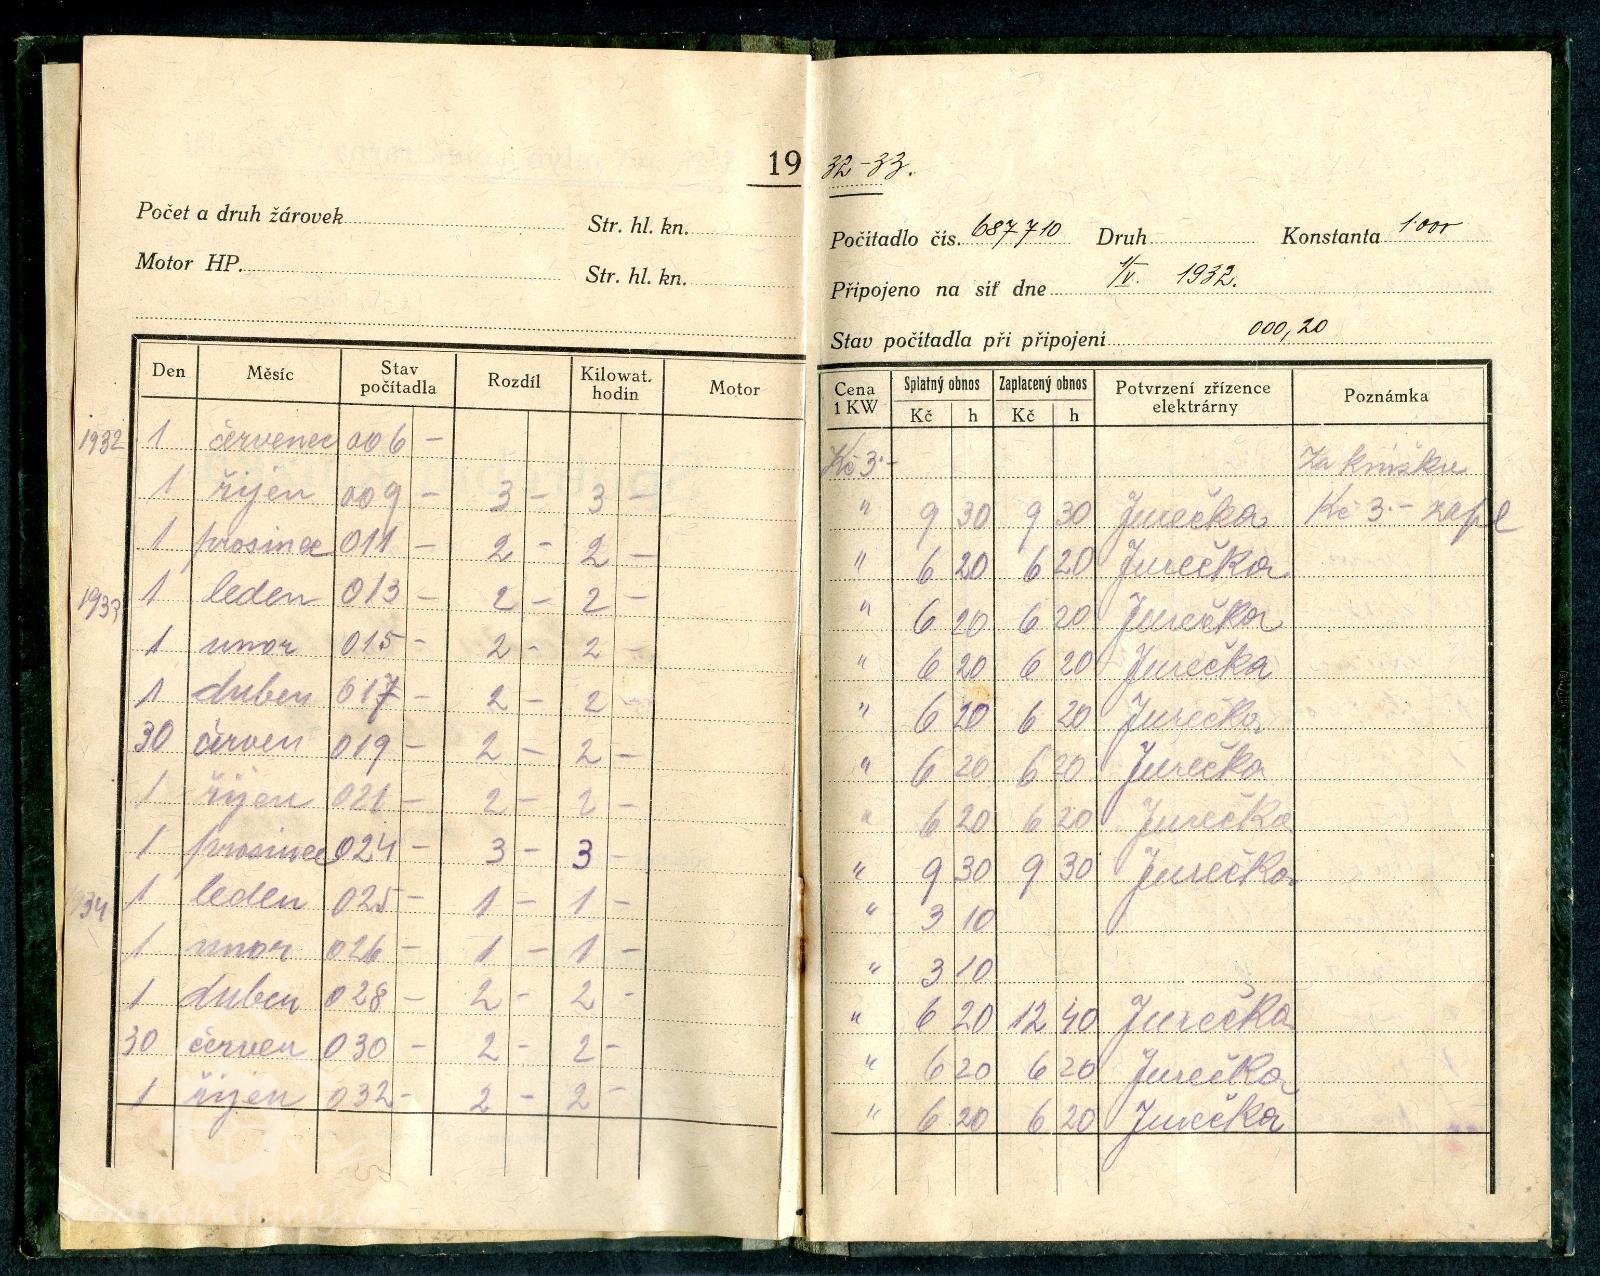 19 32-33.
Počet a druh žárovek Str. hl. kn.
Motor HP. Str. hl. kn.
Počítadlo čís. 687710 Druh Konstanta 1·000
Připojeno na síť dne 1/V. 1932.
Stav počítadla při připojení 000,20
Den Měsíc Stav počítadla Rozdíl Kilowat. hodin Motor
1932 1 červenec 006 –
1 říjen 009 – 3 – 3 –
1 prosinec 011 – 2 – 2 –
1933 1 leden 013 – 2 – 2 –
1 unor 015 – 2 – 2 –
1 duben 017 – 2 – 2 –
30 červen 019 – 2 – 2 –
1 říjen 021 – 2 – 2 –
1 prosinec 024 – 3 – 3 –
34 1 leden 025 – 1 – 1 –
1 unor 026 – 1 – 1 –
1 duben 028 – 2 – 2 –
30 červen 030 – 2 – 2 –
1 říjen 032 – 2 – 2 –
Cena 1 KW Splatný obnos Zaplacený obnos Potvrzení zřízence elektrárny Poznámka
Kč h Kč h
Kč 3·– Za knížku
" 9 30 9 30 Jurečka Kč 3.– zapl
" 6 20 6 20 Jurečka
" 6 20 6 20 Jurečka
" 6 20 6 20 Jurečka
" 6 20 6 20 Jurečka
" 6 20 6 20 Jurečka
" 6 20 6 20 Jurečka
" 9 30 9 30 Jurečka
" 3 10
" 3 10
" 6 20 12 40 Jurečka
" 6 20 6 20 Jurečka
" 6 20 6 20 Jurečka